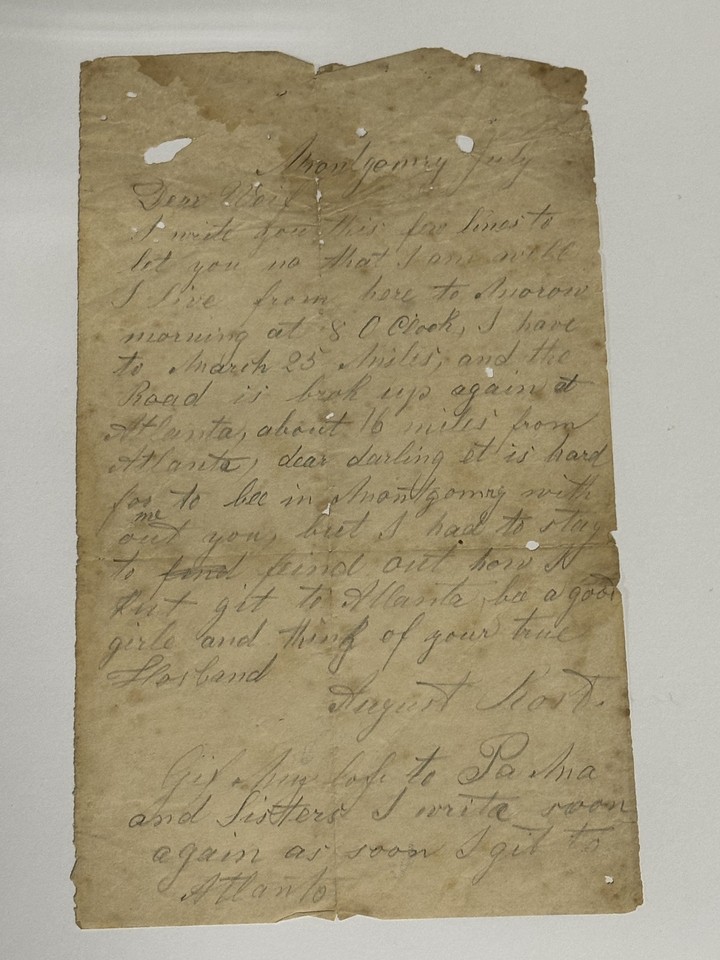 Montgomry July
Dear Weif
I write you this few lines to
let you no that I am well
I live from here to Morow
morning at 8 O Clock, I have
to March 25 Miles, and the
Road is brok up again at
Atlanta, about 16 miles from
Atlanta, dear darling et is hard
for me to bee in Montgomry with
out you, but I had to stay
to find feind out how I
git to Atlanta, be a good
girle and think of your true
Hosband
August Rost.
Gif my lofe to Pa Ma
and Sisters I write soon
again as soon I git to
Atlanta